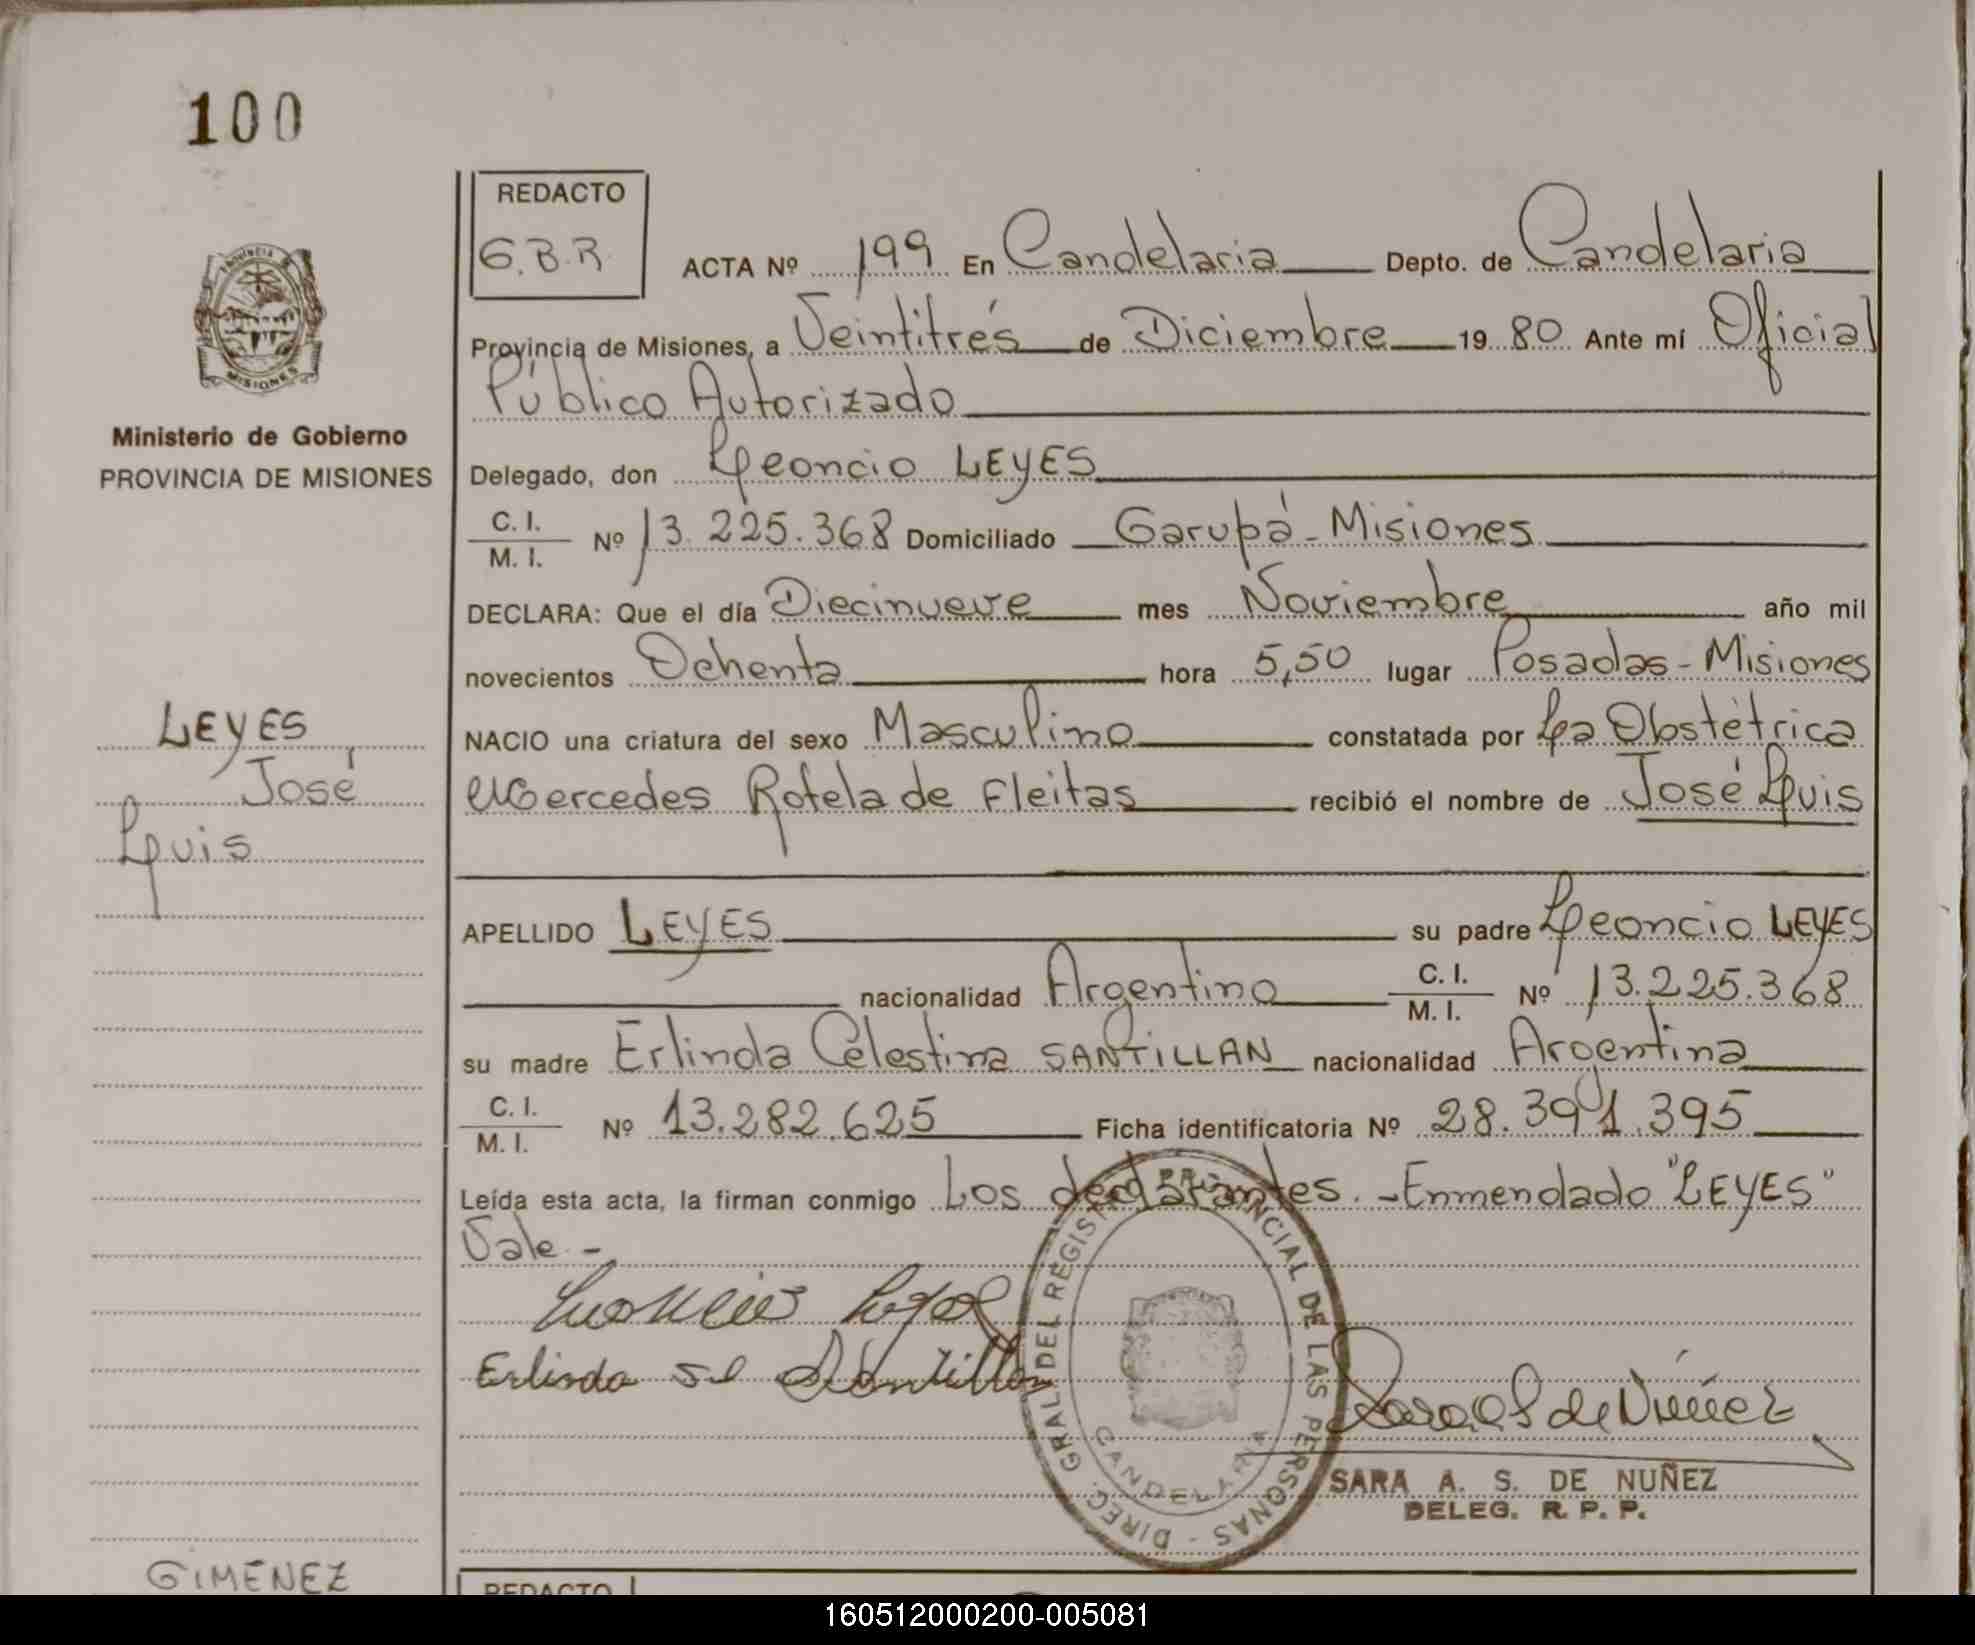 100
REDACTO
G.B.R.
ACTA Nº 199 En Candelaria Depto. de Candelaria
Provincia de Misiones, a Veintitrés de Diciembre 19 80 Ante mí Oficial
Público Autorizado
Ministerio de Gobierno
PROVINCIA DE MISIONES
Delegado, don Leoncio LEYES
C. I. / M. I. Nº 13.225.368 Domiciliado Garupá - Misiones
DECLARA: Que el día Diecinueve mes Noviembre año mil
novecientos Ochenta hora 5,50 lugar Posadas - Misiones
LEYES
José
Luis
NACIO una criatura del sexo Masculino constatada por La Obstétrica
Mercedes Rotela de Fleitas recibió el nombre de José Luis
APELLIDO LEYES su padre Leoncio LEYES
nacionalidad Argentino C. I. / M. I. Nº 13.225.368
su madre Erlinda Celestina SANTILLAN nacionalidad Argentina
C. I. / M. I. Nº 13.282.625 Ficha identificatoria Nº 28.391.395
Leída esta acta, la firman conmigo Los declarantes. - Enmendado "LEYES"
Vale. -
Erlinda Santillan
DIREC. GRAL DEL REGISTRO PROVINCIAL DE LAS PERSONAS -
CANDELARIA
MISIONES
SARA A. S. DE NUÑEZ
DELEG. R. P. P.
GIMENEZ
REDACTO
160512000200-005081